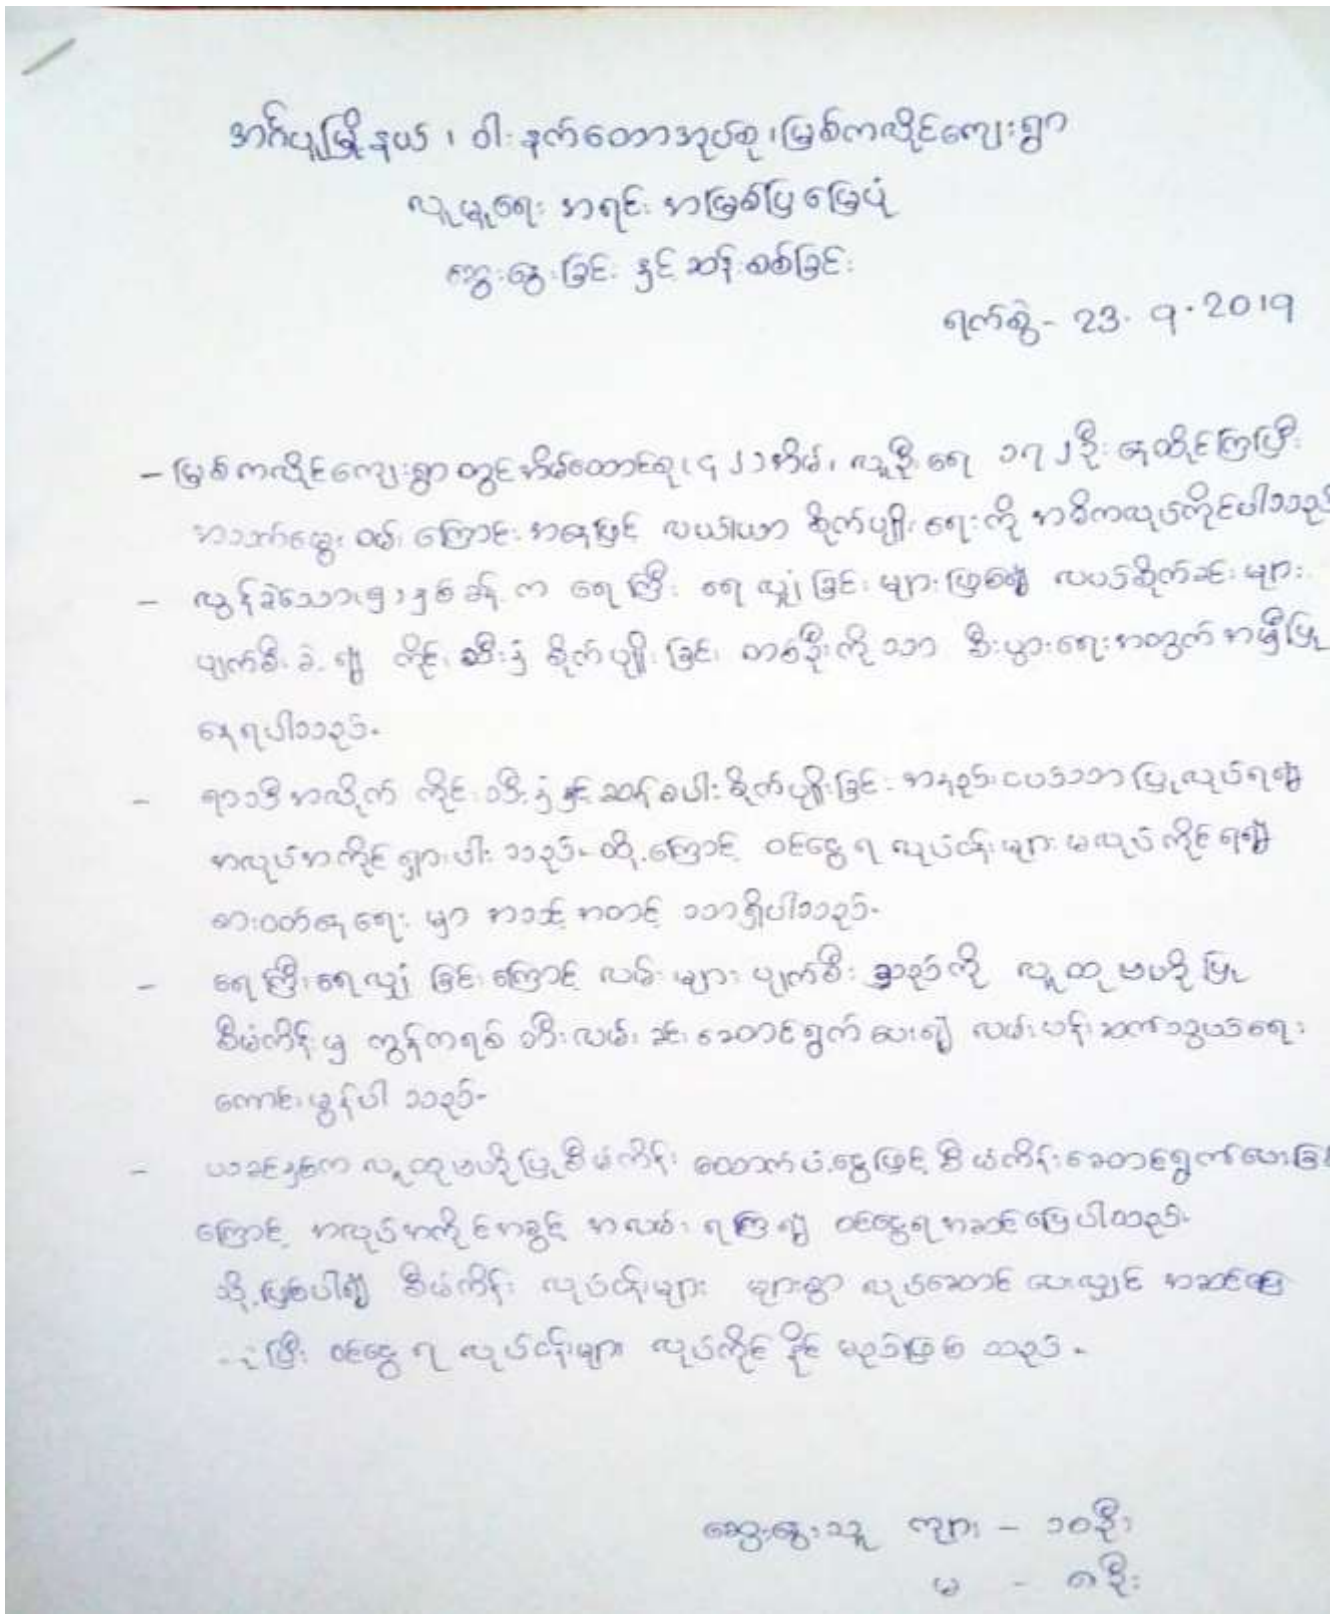 အင်္ဂပူမြို့နယ်၊ ဝါးနက်တောအုပ်စု၊ မြစ်ကလိုင်ကျေးရွာ
လူမှုရေး အရင်းအမြစ်ပြမြေပုံ
ဆွေးနွေးခြင်း နှင့် ဆန်းစစ်ခြင်း
ရက်စွဲ - 23. 9. 2019
- မြစ်ကလိုင်ကျေးရွာတွင် အိမ်ထောင်စု ( ၄၂ ) အိမ်၊ လူဦးရေ ၁၇၂ဦး နေထိုင်ကြပြီး
အသက်မွေး ဝမ်းကြောင်းအနေဖြင့် လယ်ယာ စိုက်ပျိုးရေးကို အဓိကလုပ်ကိုင်ပါသည်
- လွန်ခဲ့သော(၅)နှစ်ခန့်က ရေကြီး ရေလျှံခြင်းများဖြစ်၍ လယ်စိုက်ခင်းများ
ပျက်စီးခဲ့ရ၍ ကိုင်းသီးနှံ စိုက်ပျိုးခြင်း တစ်ဦးကိုသာ စီးပွားရေးအတွက် အမှီပြု
နေရပါသည်။
- ရာသီအလိုက် ကိုင်းသီးနှံနှင့် ဆန်စပါးစိုက်ပျိုးခြင်း အနည်းငယ်သာ ပြုလုပ်ရ၍
အလုပ်အကိုင်ရှားပါးသည်။ ထို့ကြောင့် ဝင်ငွေရ လုပ်ငန်းများ မလုပ်ကိုင်ရ၍
စားဝတ်နေရေးမှာ အသင့်အတင့်သာရှိပါသည်။
- ရေကြီးရေလျှံခြင်းကြောင့် လမ်းများ ပျက်စီးသည်ကို လူထုဗဟိုပြု
စီမံကိန်းမှ ကွန်ကရစ် လမ်းခင်း ဆောင်ရွက်ပေး၍ လမ်းပန်းဆက်သွယ်ရေး
ကောင်းမွန်ပါသည်။
- ယခင်နှစ်က လူထုဗဟိုပြုစီမံကိန်း ထောက်ပံ့ငွေဖြင့် စီမံကိန်းဆောင်ရွက်ပေးခြင်
ကြောင့် အလုပ်အကိုင်အခွင့်အလမ်း ရကြ၍ ဝင်ငွေရအဆင်ပြေပါသည်။
သို့ဖြစ်ပါ၍ စီမံကိန်း လုပ်ငန်းများ များစွာ လုပ်ဆောင်ပေးလျှင် အဆင်ပြေ
ပြီး ဝင်ငွေရ လုပ်ငန်းများ လုပ်ကိုင်နိုင်မည်ဖြစ်သည်။
ဆွေးနွေးသူ ကျား - ၁၀ဦး
မ - ၈ဦး